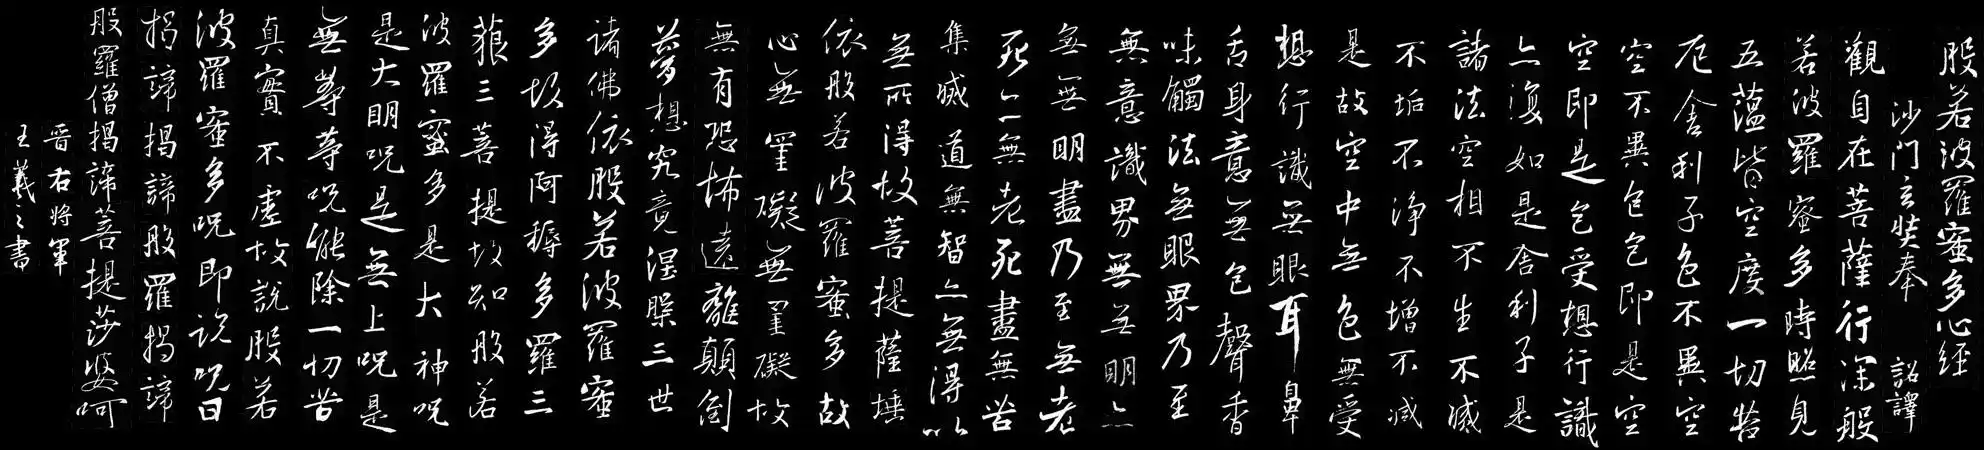 般若波羅蜜多心経
沙門玄奘奉 詔譯
觀自在菩薩行深般
若波羅蜜多時照見
五蘊皆空度一切苦
厄舍利子色不異空
空不異色色即是空
空即是色受想行識
亦復如是舍利子是
諸法空相不生不滅
不垢不淨不增不減
是故空中無色無受
想行識無眼耳鼻
舌身意無色聲香
味觸法無眼界乃至
無意識界無無明亦
無無明盡乃至無老
死亦無老死盡無苦
集滅道無智亦無得以
無所得故菩提薩埵
依般若波羅蜜多故
心無罣礙無罣礙故
無有恐怖遠離顛倒
夢想究竟涅槃三世
諸佛依般若波羅蜜
多故得阿耨多羅三
藐三菩提故知般若
波羅蜜多是大神呪
是大明呪是無上呪是
無等等呪能除一切苦
真實不虛故說般若
波羅蜜多呪即說呪曰
揭諦揭諦般羅揭諦
般羅僧揭諦菩提莎婆呵
晉右將軍
王羲之書